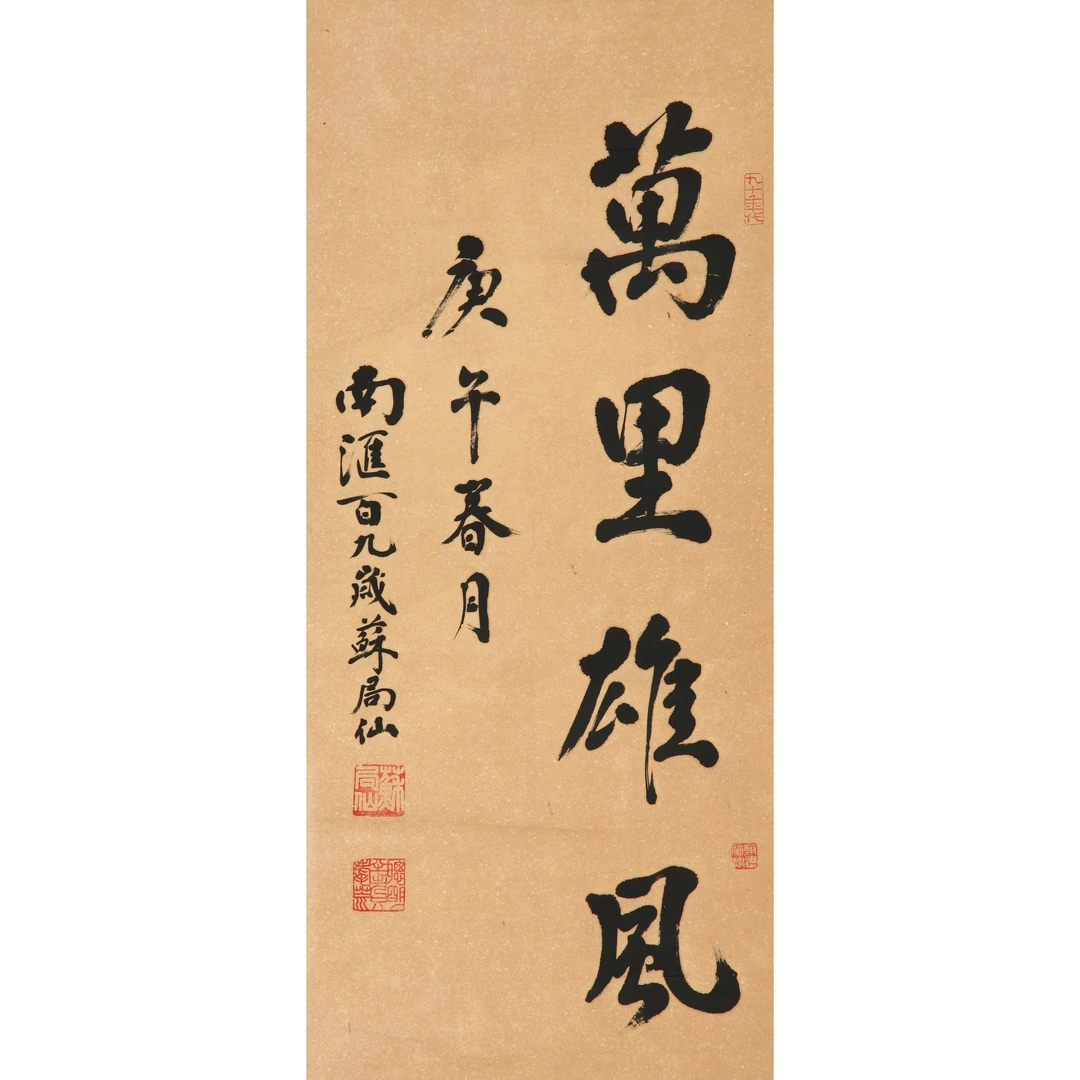 萬里雄風
庚午春月
南滙百九歲蘇局仙
九十年代
蘇局仙